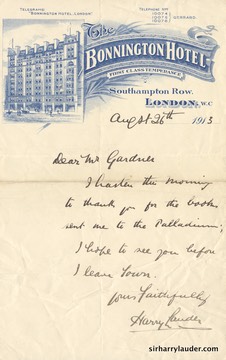 TELEGRAMS
"BONNINGTON HOTEL, LONDON"
TELEPHONE Nos.
The
BONNINGTON HOTEL
FIRST CLASS TEMPERANCE
Southampton Row.
LONDON, W.C
August 26th 1913
Dear Mr Gardner
I hasten this morning
to thank you for the books
sent me to the Palladium;
I hope to see you before
I leave Town.
Yours Faithfully
Harry Lauder
sirharrylauder.com